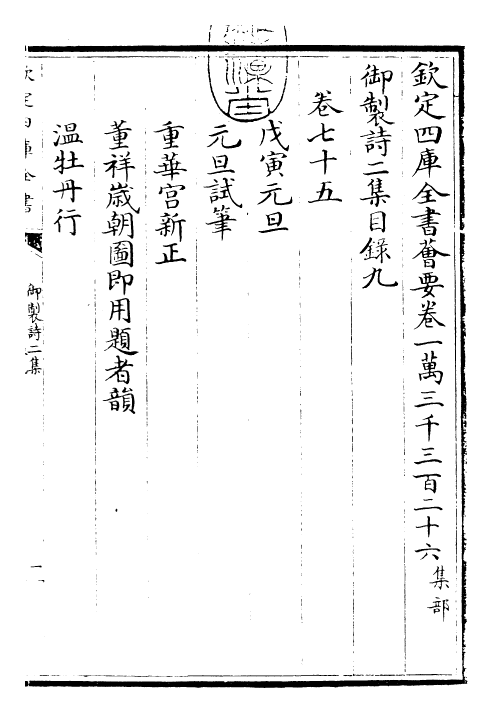 欽定四庫全書薈要卷一萬三千三百二十六集部
御製詩二集目録九
卷七十五
戊寅元旦
元旦試筆
重華宫新正
董祥嵗朝圖即用題者韻
温牡丹行
欽定四庫全書
御製詩二集
一